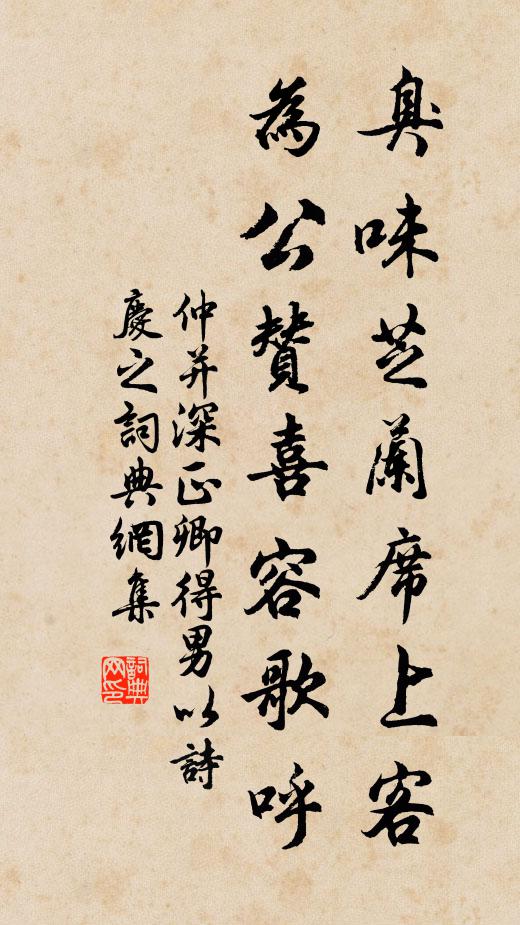 臭味芝蘭席上客
為公贊喜容歌呼
仲并深正卿得男以詩
慶之詞典網集
詞典网印